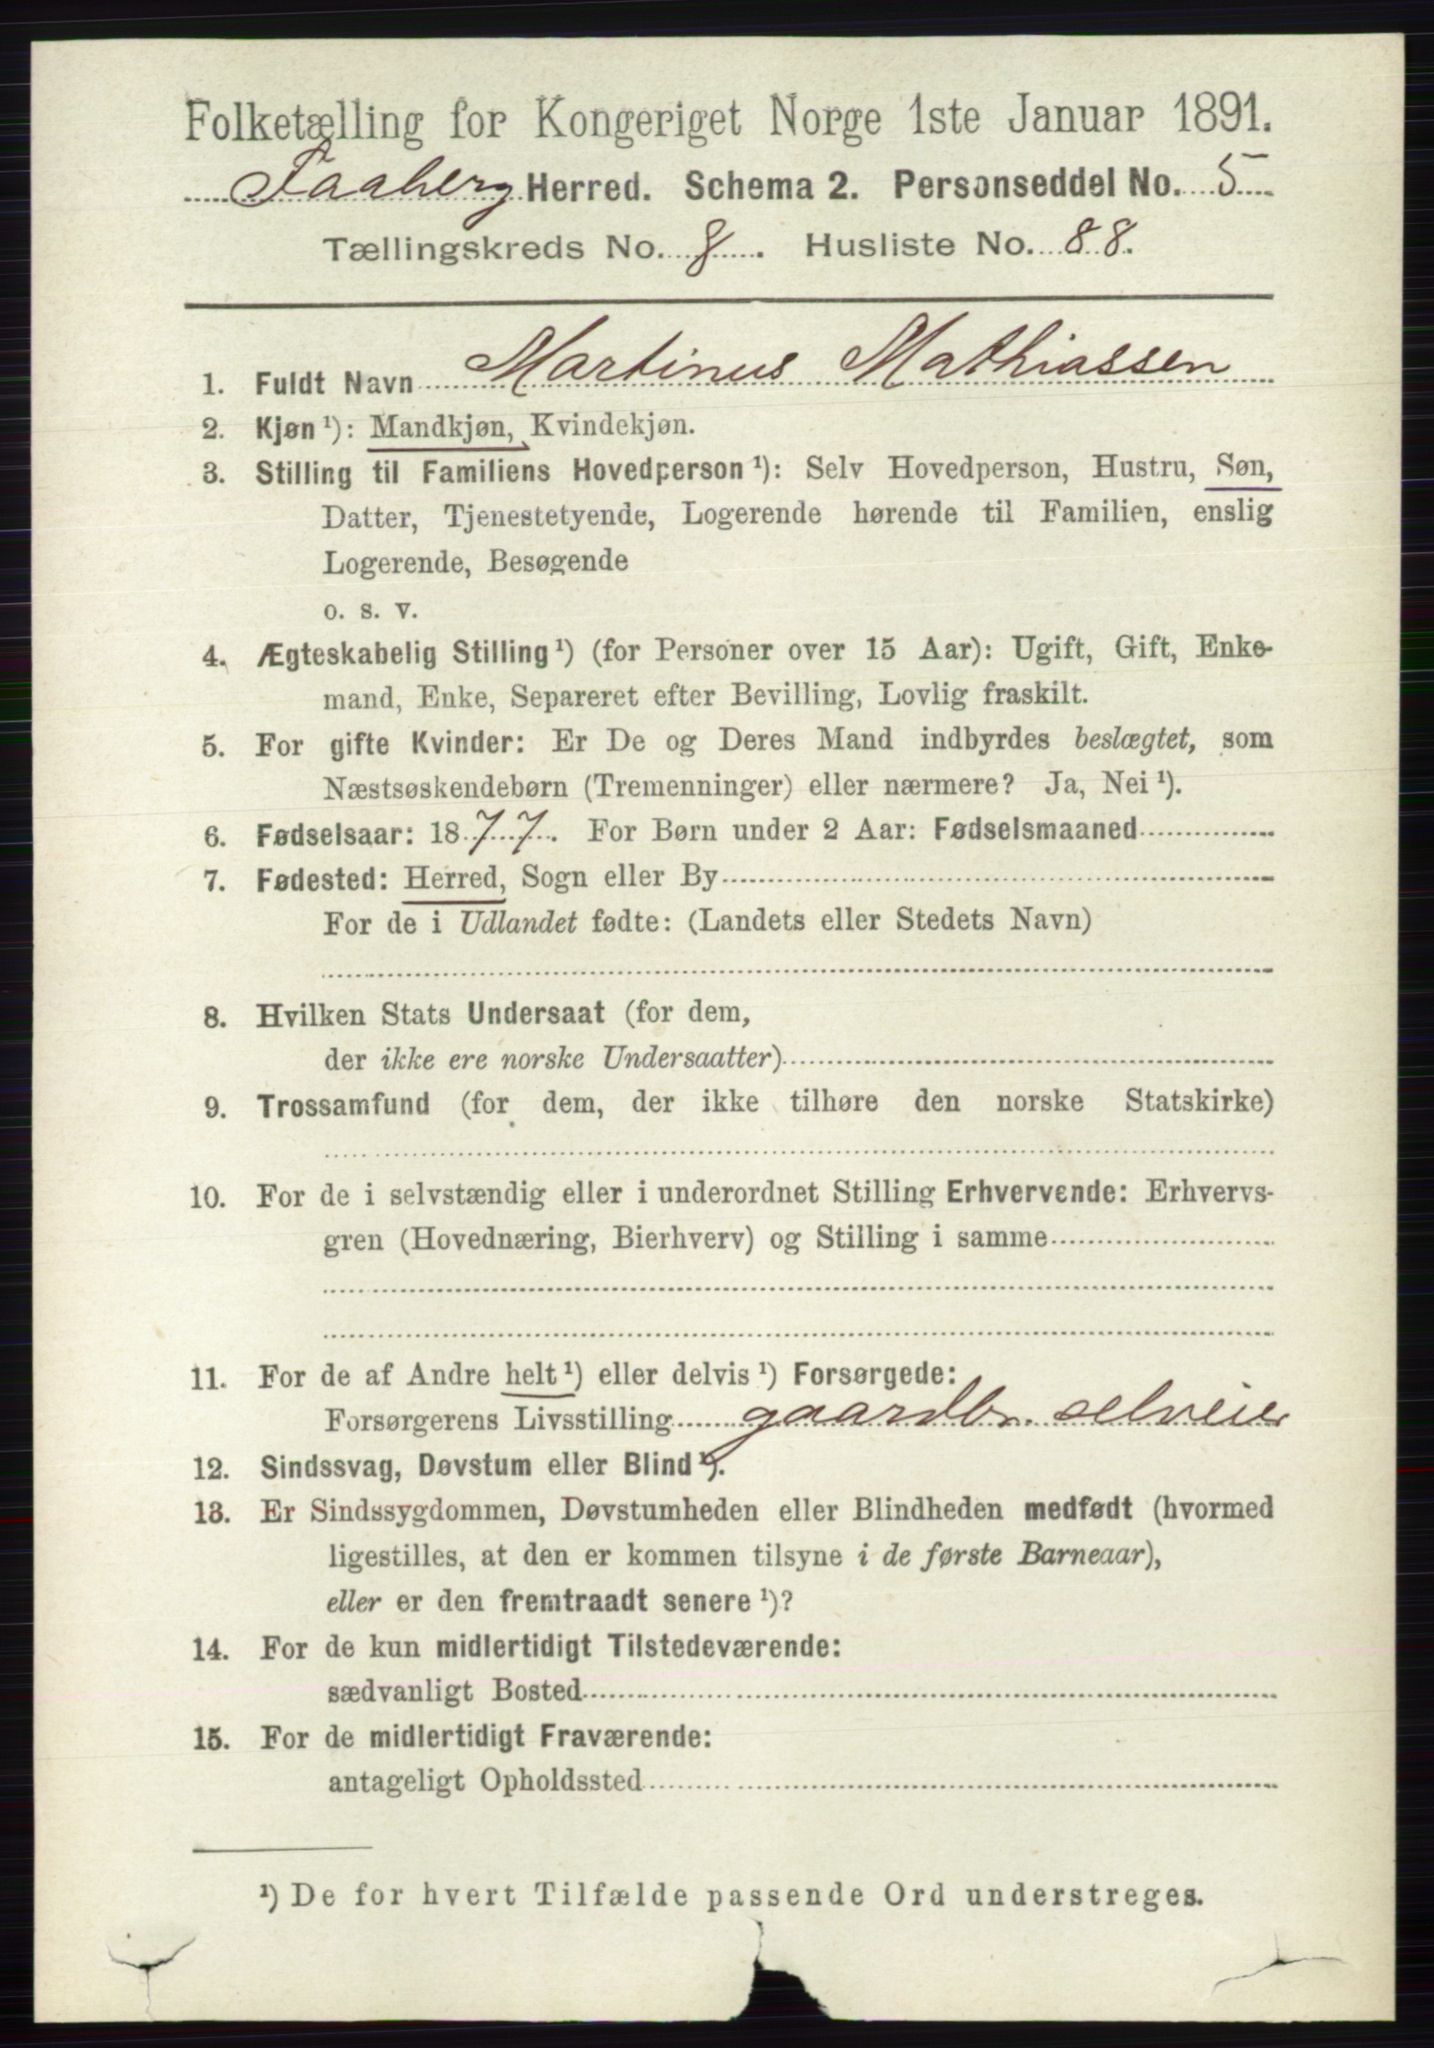 Folketælling for Kongeriget Norge 1ste Januar 1891.
Faaberg Herred. Schema 2. Personseddel No. 5
Tællingskreds No. 8. Husliste No. 88.
1. Fuldt Navn Martinus Mathiassen
2. Kjøn¹): Mandkjøn, Kvindekjøn.
3. Stilling til Familiens Hovedperson¹): Selv Hovedperson, Hustru, Søn,
Datter, Tjenestetyende, Logerende hørende til Familien, enslig
Logerende, Besøgende
o. s. v.
4. Ægteskabelig Stilling¹) (for Personer over 15 Aar): Ugift, Gift, Enke-
mand, Enke, Separeret efter Bevilling, Lovlig fraskilt.
5. For gifte Kvinder: Er De og Deres Mand indbyrdes beslægtet, som
Næstsøskendebørn (Tremenninger) eller nærmere? Ja, Nei¹).
6. Fødselsaar: 1877. For Børn under 2 Aar: Fødselsmaaned
7. Fødested: Herred, Sogn eller By
For de i Udlandet fødte: (Landets eller Stedets Navn)
8. Hvilken Stats Undersaat (for dem,
der ikke ere norske Undersaatter)
9. Trossamfund (for dem, der ikke tilhøre den norske Statskirke)
10. For de i selvstændig eller i underordnet Stilling Erhvervende: Erhvervs-
gren (Hovednæring, Bierhverv) og Stilling i samme
11. For de af Andre helt¹) eller delvis¹) Forsørgede:
Forsørgerens Livsstilling gaardbr. selveier
12. Sindssvag, Døvstum eller Blind¹).
13. Er Sindssygdommen, Døvstumheden eller Blindheden medfødt (hvormed
ligestilles, at den er kommen tilsyne i de første Barneaar),
eller er den fremtraadt senere¹)?
14. For de kun midlertidigt Tilstedeværende:
sædvanligt Bosted
15. For de midlertidigt Fraværende:
antageligt Opholdssted
¹) De for hvert Tilfælde passende Ord understreges.